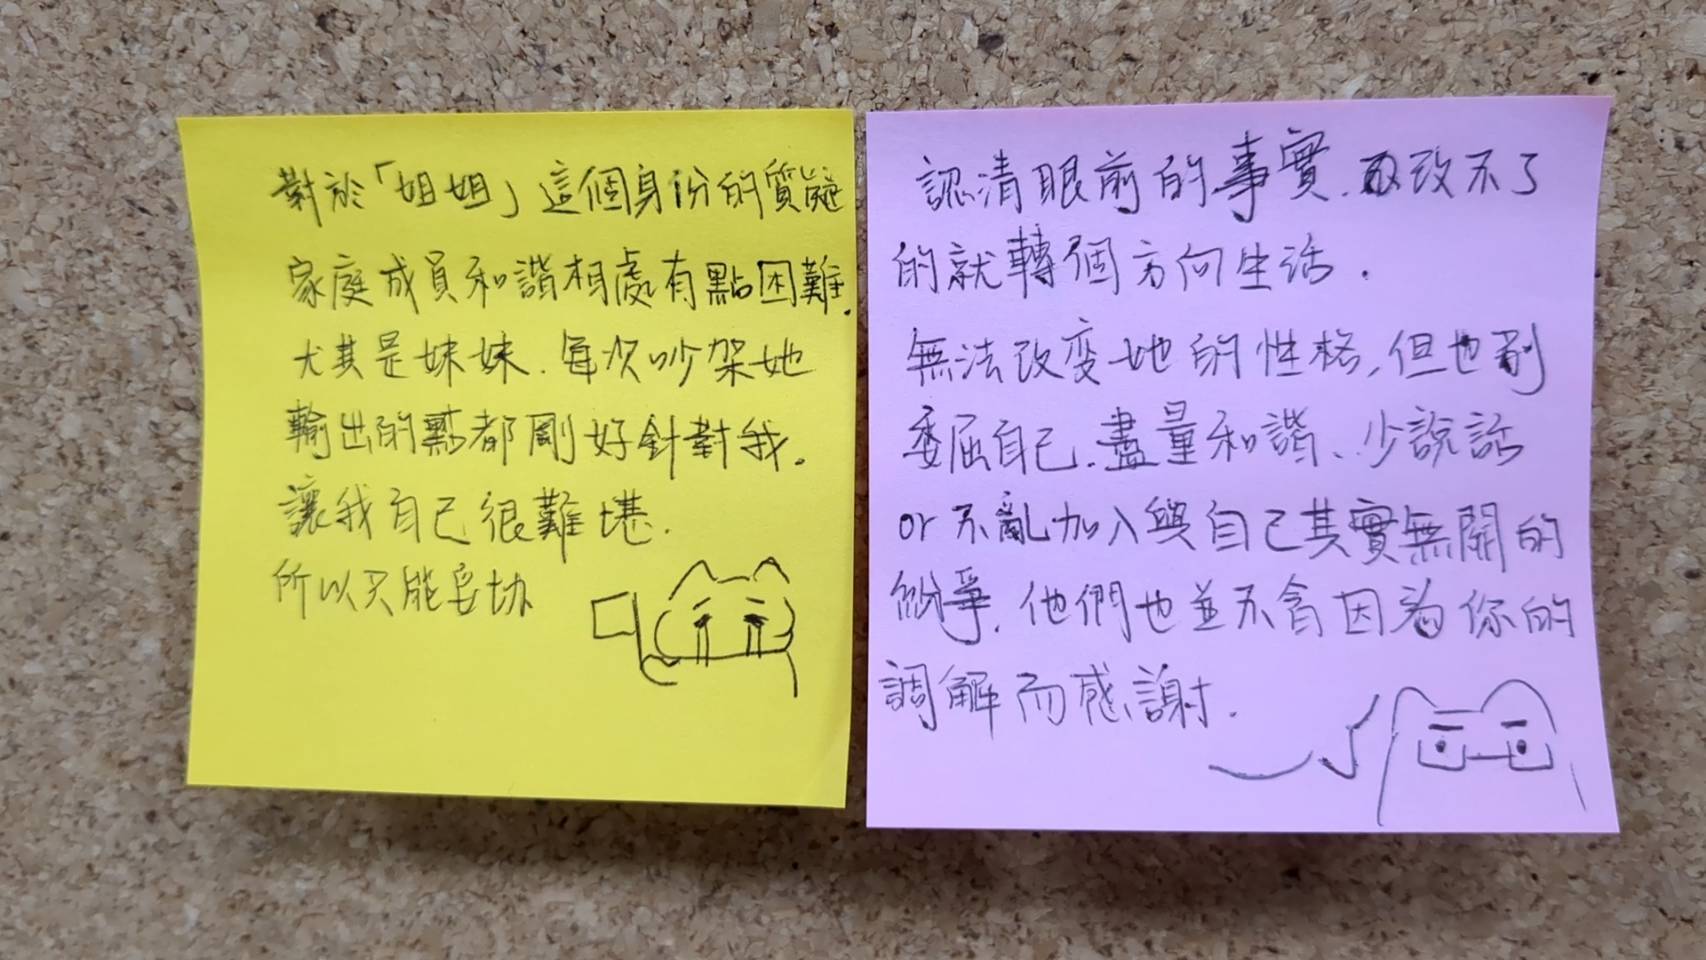 對於「姐姐」這個身份的質疑
家庭成員和諧相處有點困難.
尤其是妹妹.每次吵架她
輸出的點都剛好針對我.
讓我自己很難堪.
所以只能妥協
認清眼前的事實.改不了
的就轉個方向生活.
無法改变她的性格,但也別
委屈自己.盡量和諧、少說話
or 不亂加入與自己其實無關的
紛爭.他們也並不會因為你的
調解而感謝.